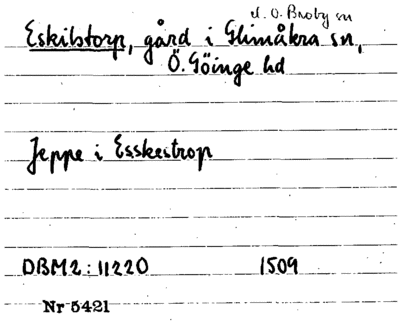 d. O. Broby sn
Eskilstorp, gård i Glimåkra sn,
Ö. Göinge hd
Jeppe i Esskestrop
DBM2: 11220 1509
Nr 5421